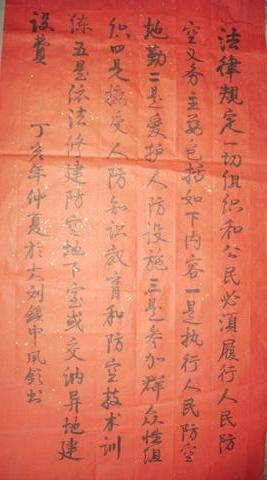 法律规定一切组织和公民必须履行人民防
空义务主要包括如下内容一是执行人民防空
地勤二是爱护人防设施三是参加群众性组
织四是接受人防知识教育和防空技术训
练五是依法修建防空地下室或交纳异地建
设费
丁亥年仲夏於大刘镇中凤岭书